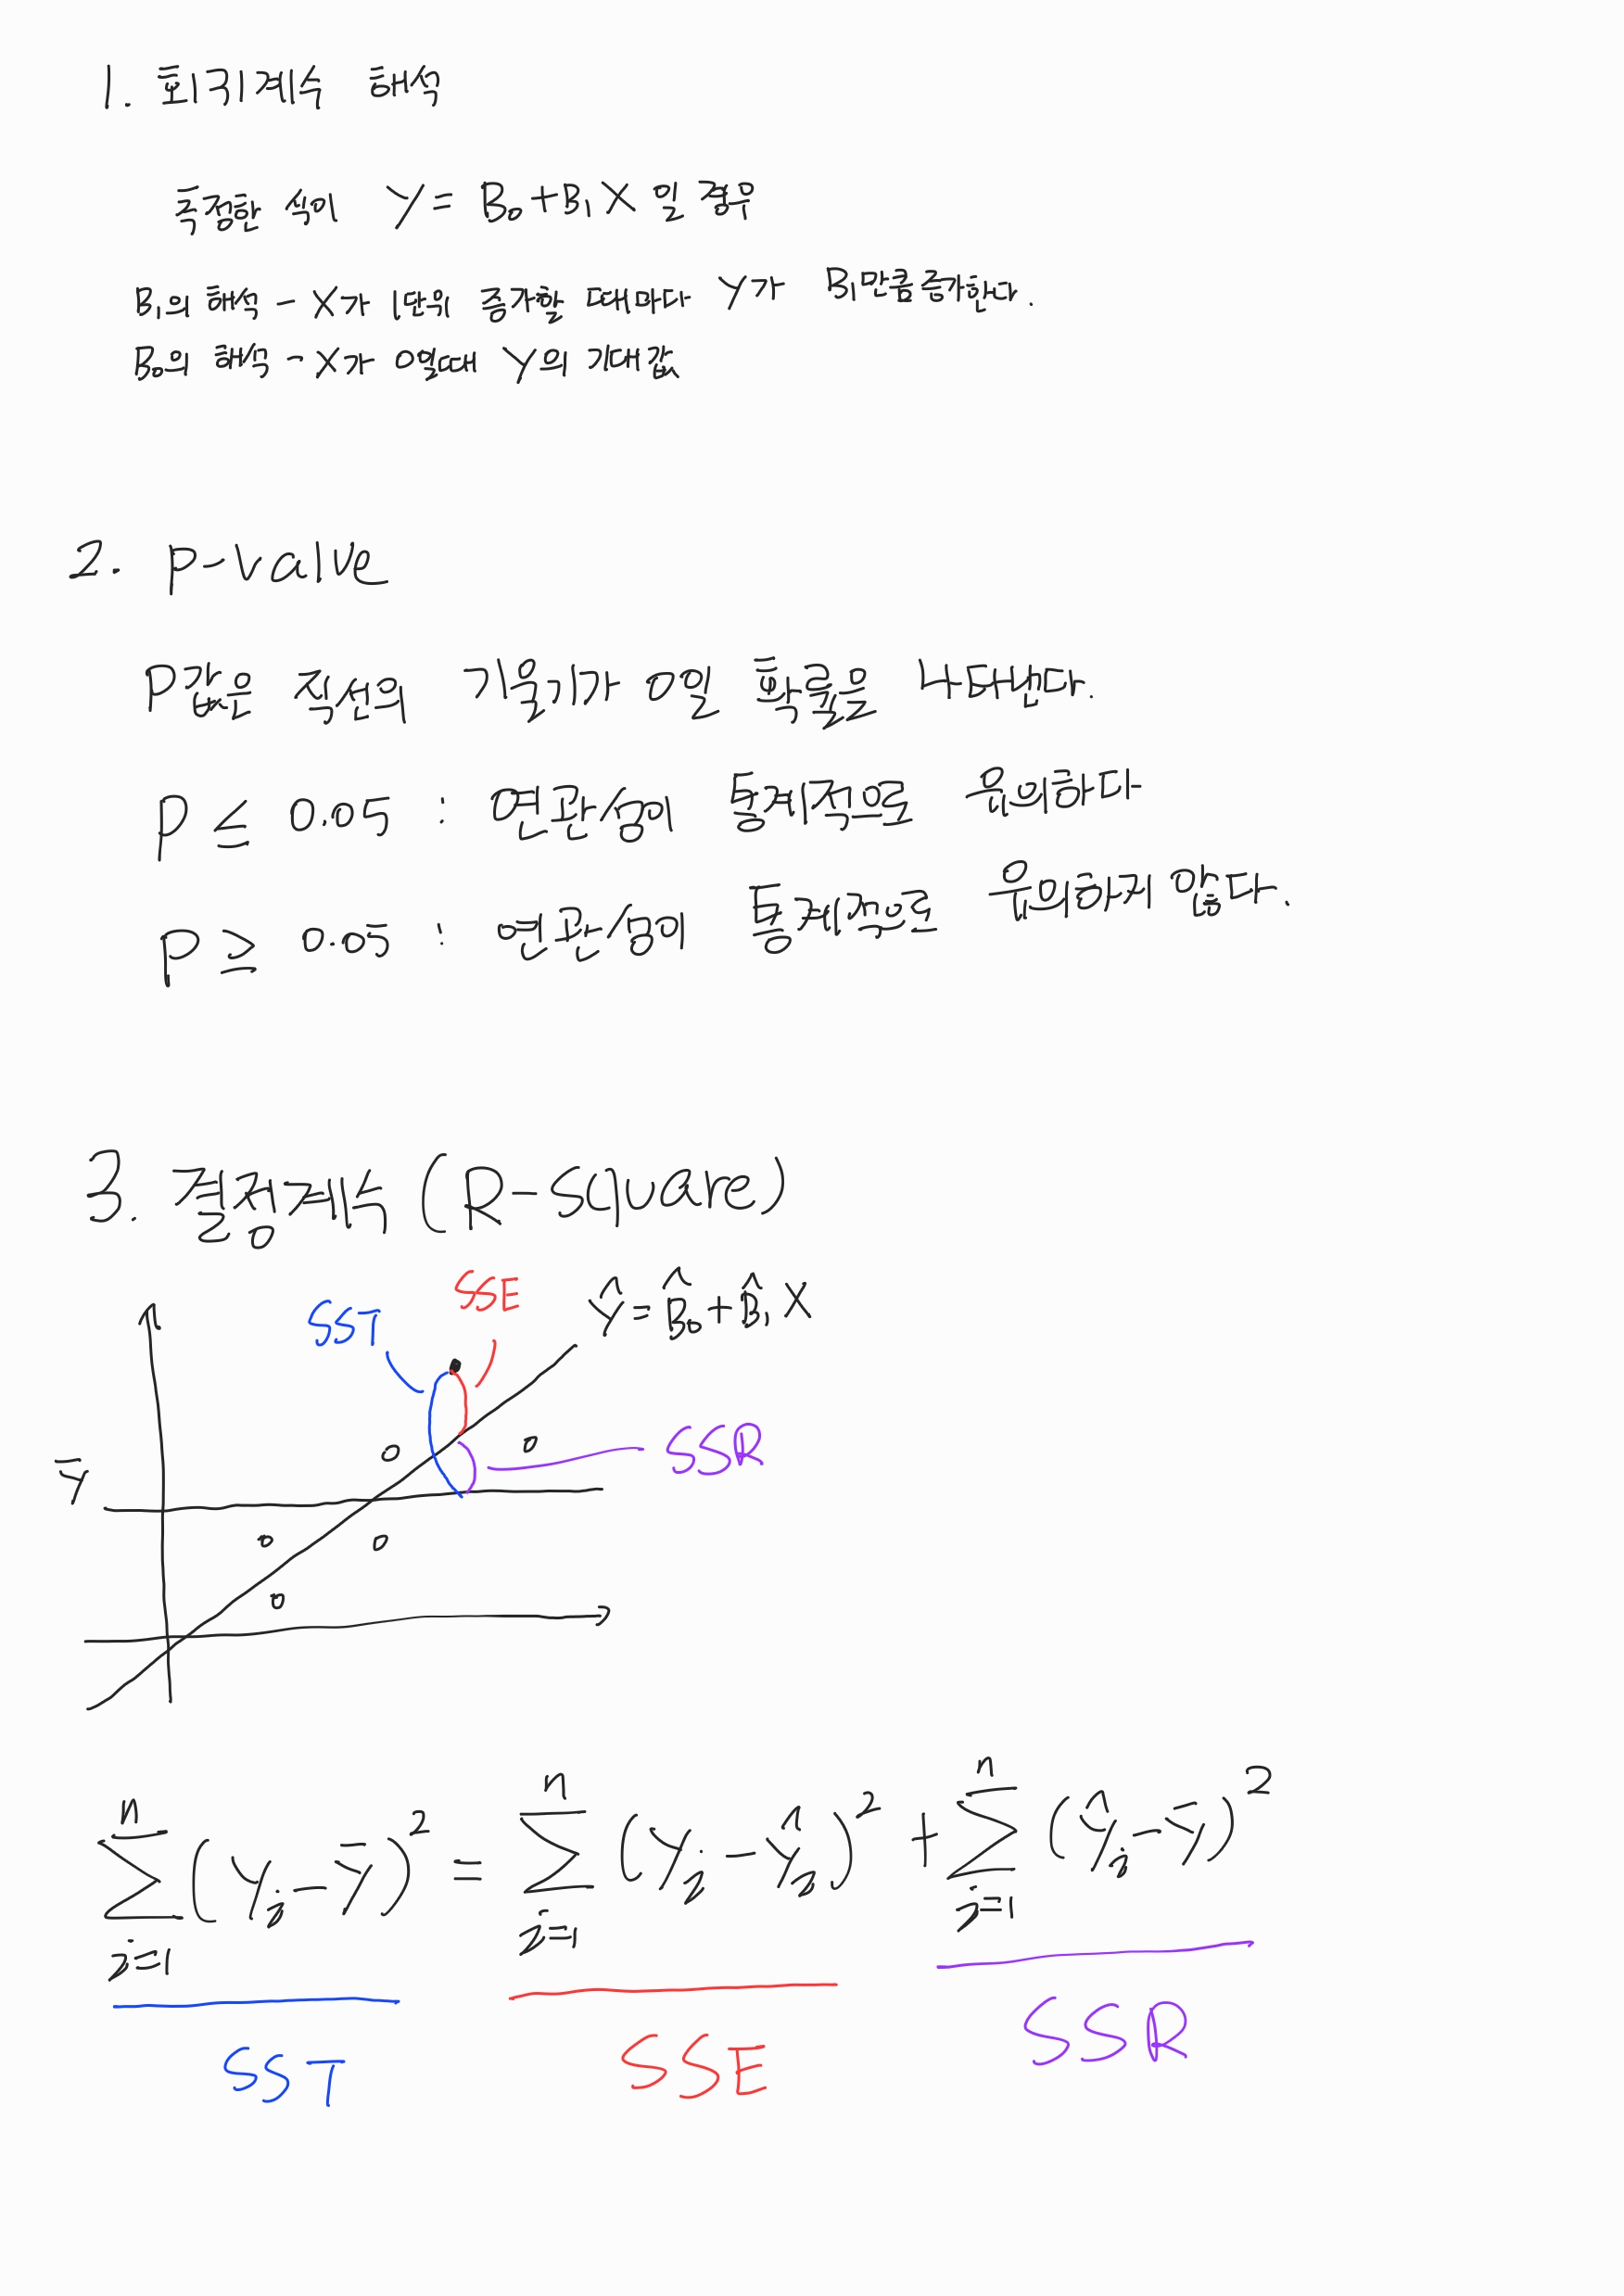 1. 회귀계수 해석
측정한 식이 Y = B₀ + B₁X 일 경우
B₁의 해석 - X가 1단위 증가할 때마다 Y가 B₁만큼 증가한다.
B₀의 해석 - X가 0일때 Y의 기대값
2. P-value
P값은 직선의 기울기가 0일 확률을 나타낸다.
P ≤ 0.05 : 연관성이 통계적으로 유의하다
P ≥ 0.05 : 연관성이 통계적으로 유의하지 않다.
3. 결정계수 (R-square)
SST SSE Ŷ = B̂₀ + B̂₁X
SSR
Ȳ
n n n
∑(Yᵢ - Ȳ)² = ∑(Yᵢ - Ŷᵢ)² + ∑(Ŷᵢ - Ȳ)²
i=1 i=1 i=1
SST SSE SSR